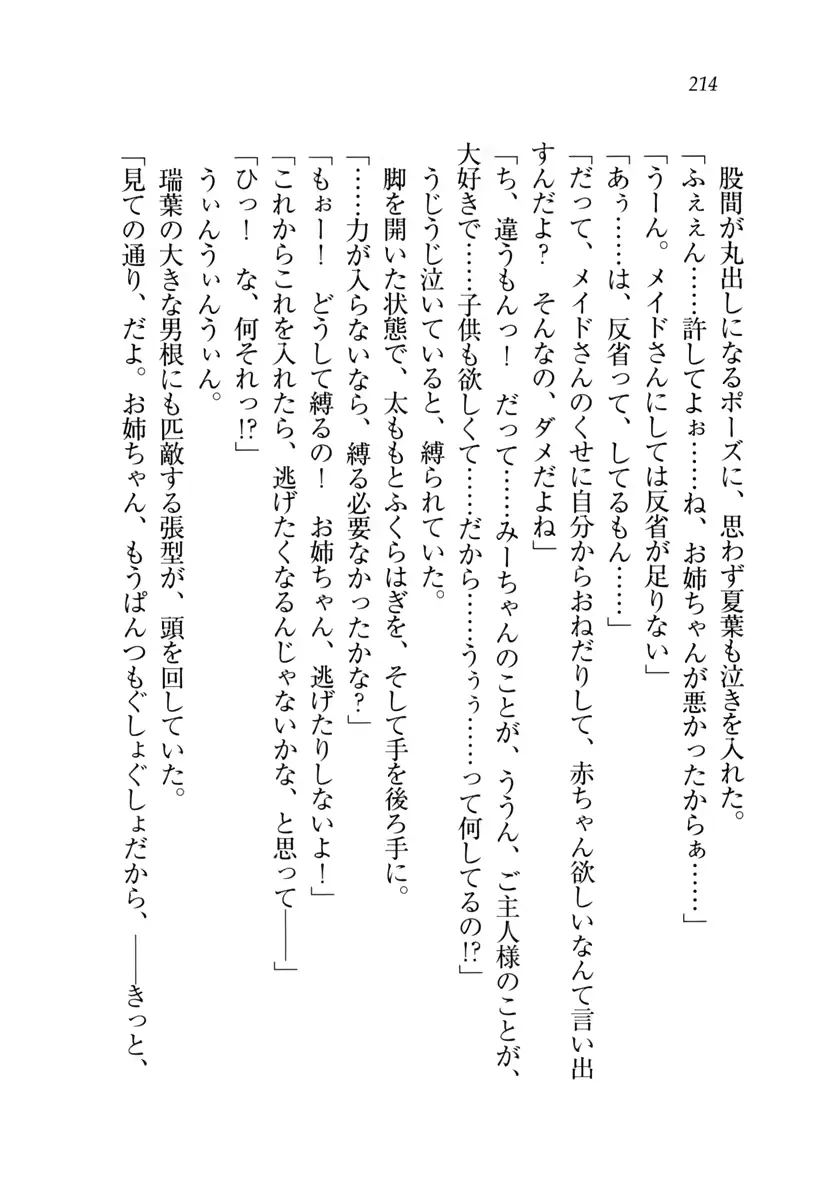 214
股間が丸出しになるポーズに、思わず夏葉も泣きを入れた。
「ふぇぇん……許してよぉ……ね、お姉ちゃんが悪かったからぁ……」
「うーん。メイドさんにしては反省が足りない」
「あぅ……は、反省って、してるもん……」
「だって、メイドさんのくせに自分からおねだりして、赤ちゃん欲しいなんて言い出
すんだよ？　そんなの、ダメだよね」
「ち、違うもんっ！　だって……みーちゃんのことが、ううん、ご主人様のことが、
大好きで……子供も欲しくて……だから……うぅぅ……って何してるの!?」
うじうじ泣いていると、縛られていた。
脚を開いた状態で、太ももとふくらはぎを、そして手を後ろ手に。
「……力が入らないなら、縛る必要なかったかな？」
「もぉー！　どうして縛るの！　お姉ちゃん、逃げたりしないよ！」
「これからこれを入れたら、逃げたくなるんじゃないかな、と思って――」
「ひっ！　な、何それっ!?」
うぃんうぃんうぃん。
瑞葉の大きな男根にも匹敵する張型が、頭を回していた。
「見ての通り、だよ。お姉ちゃん、もうぱんつもぐしょぐしょだから、――きっと、